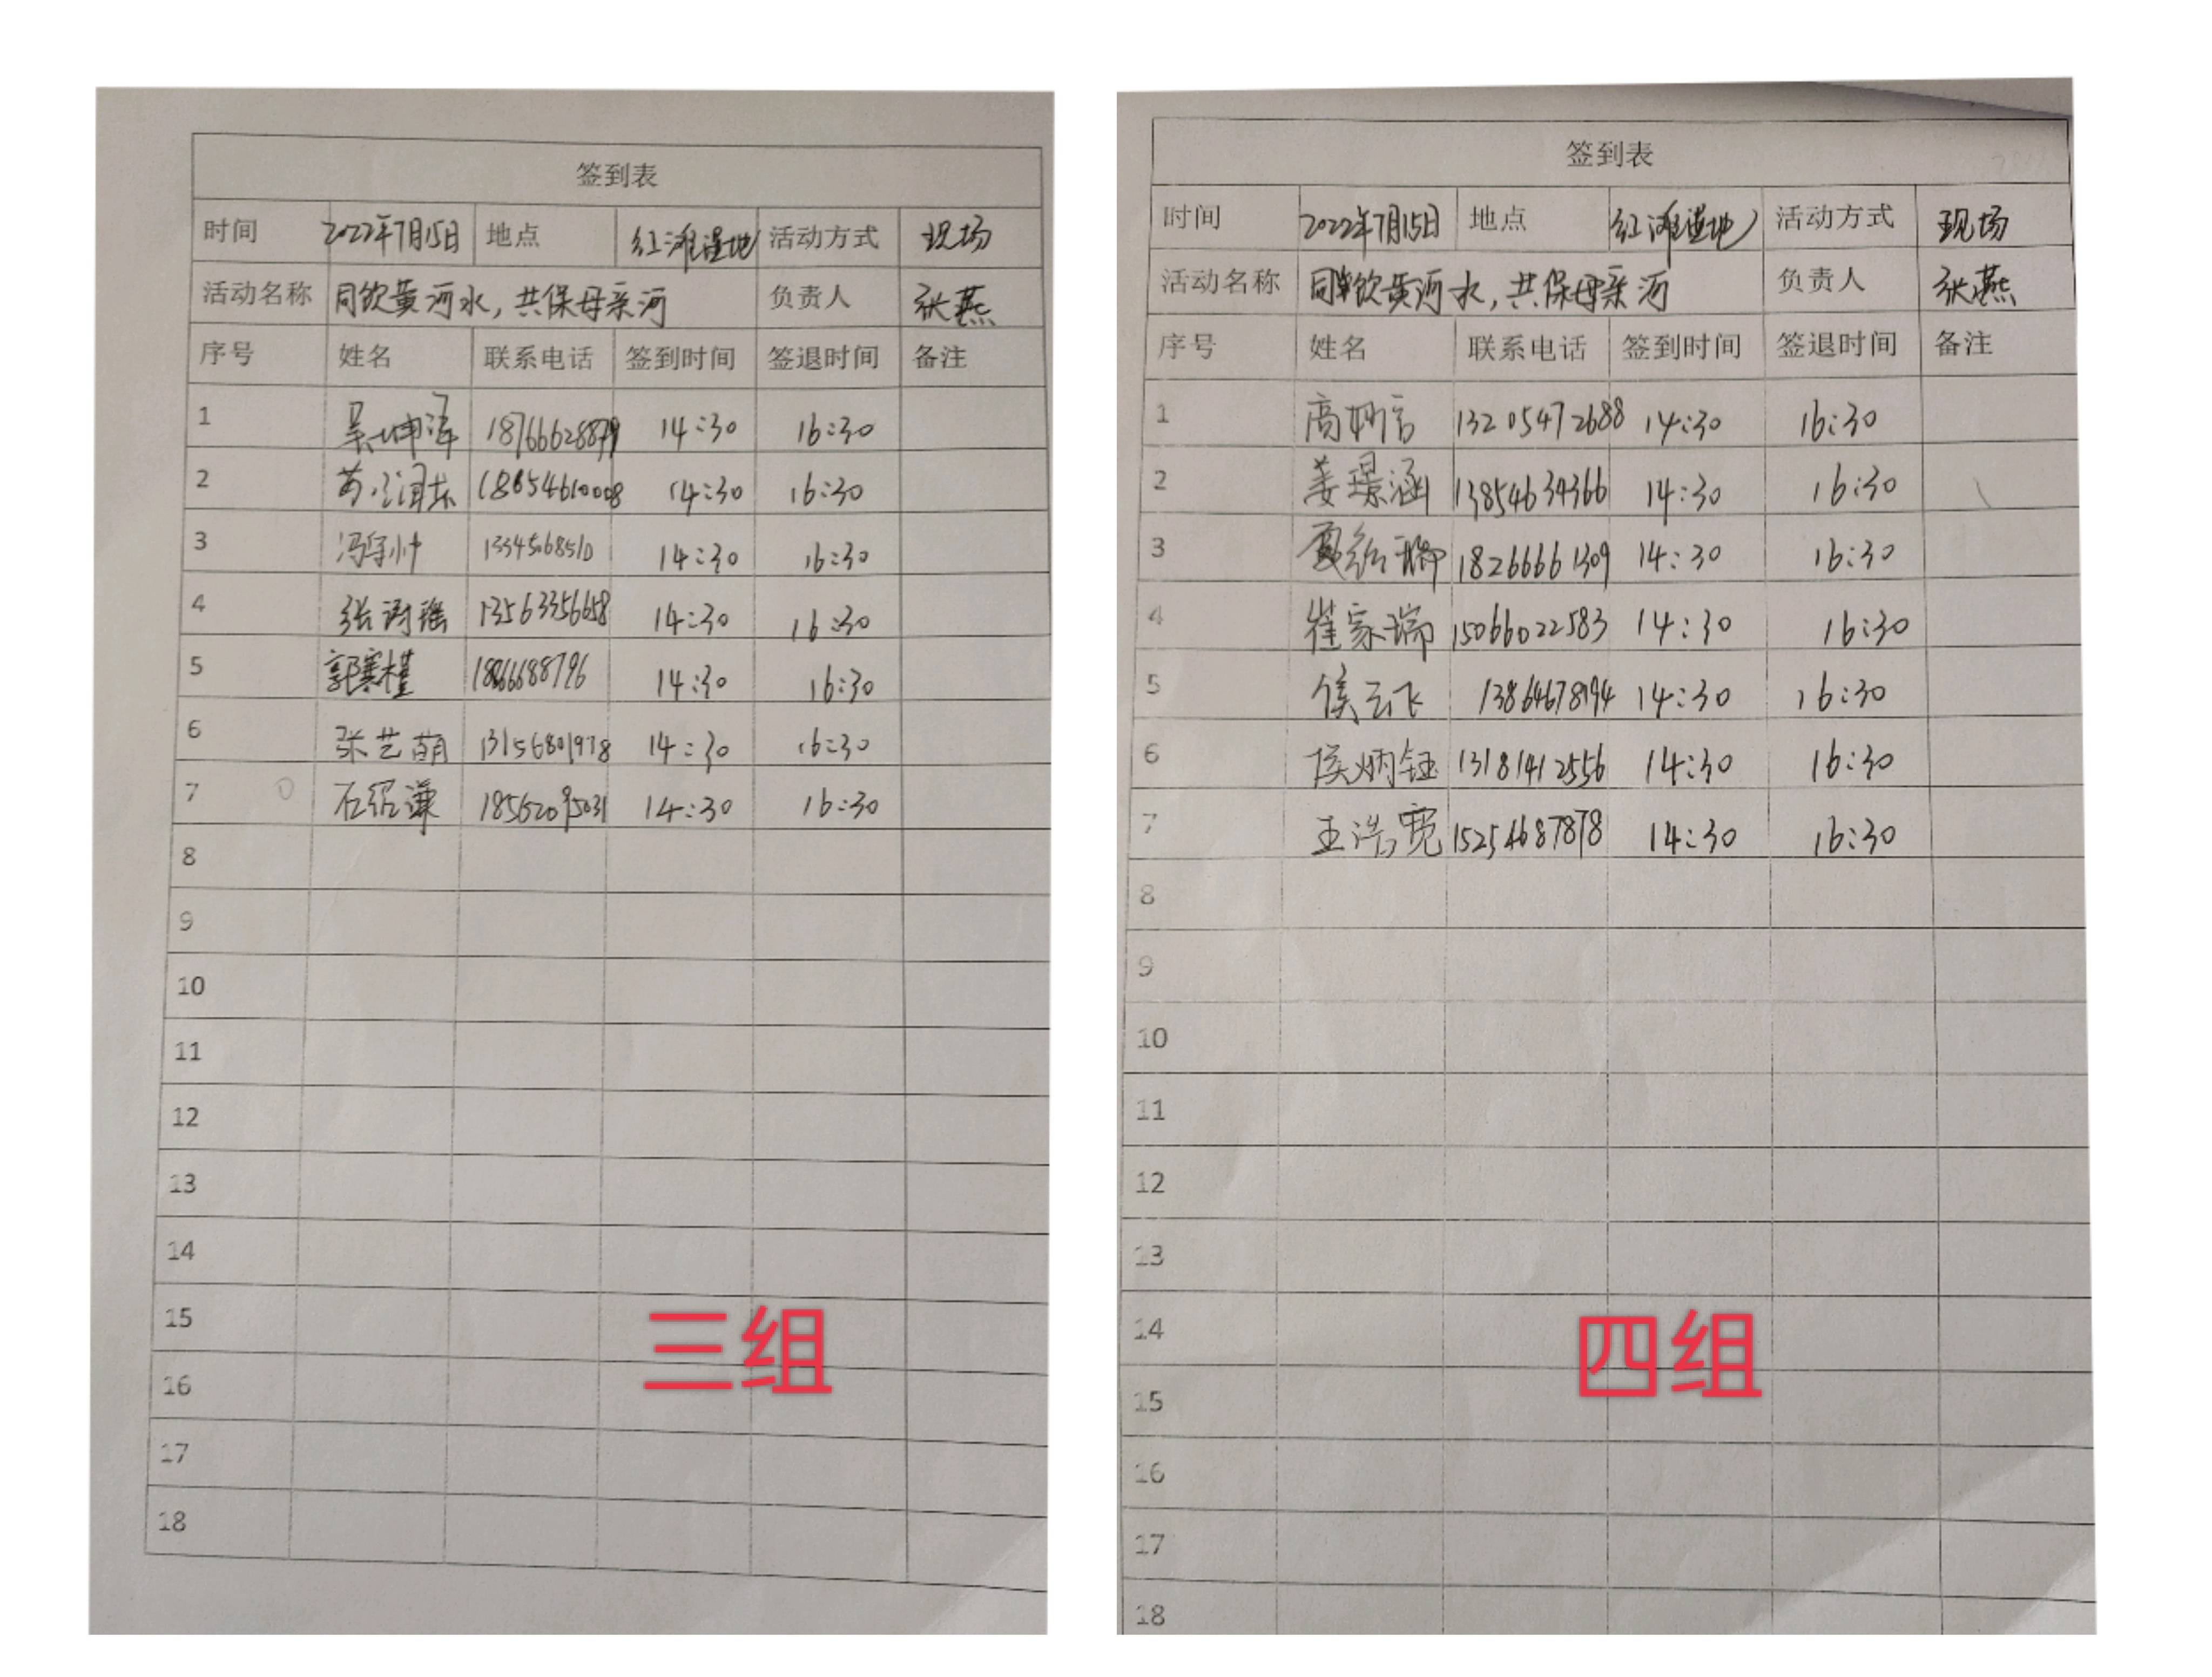 签到表
时间 2022年7月15日 地点 红滩湿地 活动方式 现场
活动名称 同饮黄河水，共保母亲河 负责人 张燕
序号 姓名 联系电话 签到时间 签退时间 备注
1 吴坤泽 18766628879 14:30 16:30
2 苏润东 18654610008 14:30 16:30
3 冯宇帅 13345068510 14:30 16:30
4 张诗瑶 13563356658 14:30 16:30
5 郭寒槿 14:30 16:30
6 张艺萌 13156801978 14:30 16:30
7 石绍谦 18562095031 14:30 16:30
8
9
10
11
12
13
14
15
16
17
18
三组
签到表
时间 2022年7月15日 地点 红滩湿地 活动方式 现场
活动名称 同饮黄河水，共保母亲河 负责人 张燕
序号 姓名 联系电话 签到时间 签退时间 备注
1 高妙言 13205472688 14:30 16:30
2 姜璟涵 13854634366 14:30 16:30
3 18266661309 14:30 16:30
4 崔家瑞 15066022583 14:30 16:30
5 侯云飞 13864678194 14:30 16:30
6 侯炳钰 13181412556 14:30 16:30
7 王浩宽 15254687878 14:30 16:30
8
9
10
11
12
13
14
15
16
17
18
四组